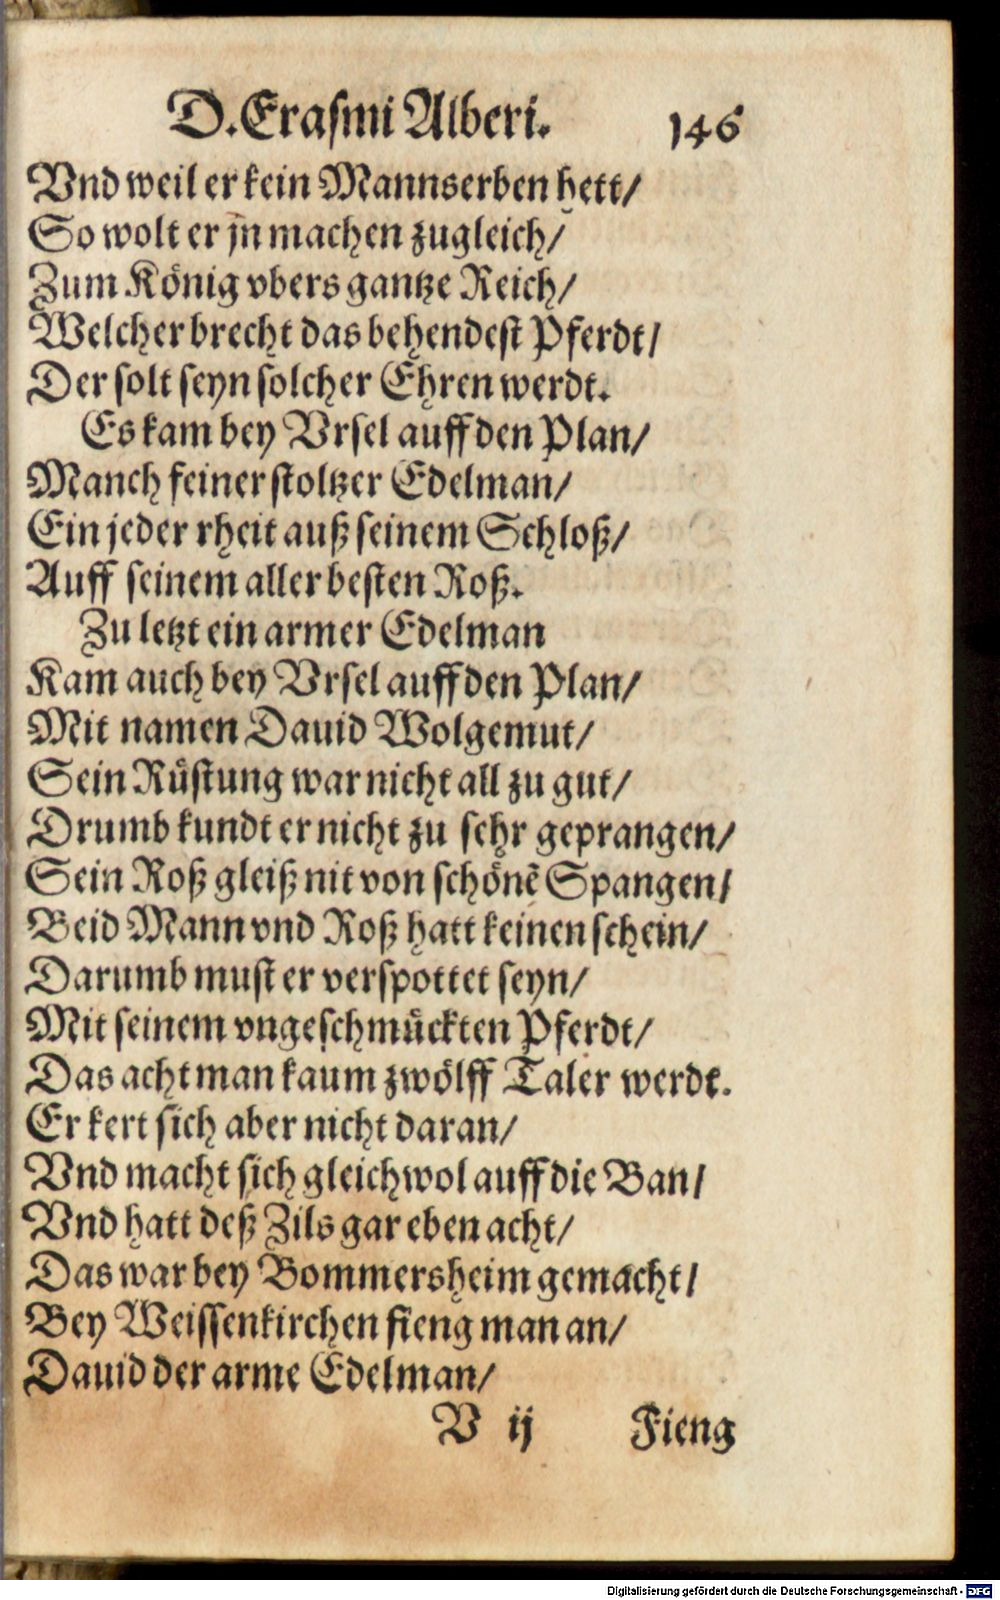 D. Erasmi Alberi. 146
Vnd weil er kein Mannserben hett/
So wolt er jn machen zugleich/
Zum König vbers gantze Reich/
Welcher brecht das behendest Pferdt/
Der solt seyn solcher Ehren werdt.
Es kam bey Vrsel auff den Plan/
Manch feiner stoltzer Edelman/
Ein jeder rheit auß seinem Schloß/
Auff seinem aller besten Roß.
Zu letzt ein armer Edelman
Kam auch bey Vrsel auff den Plan/
Mit namen Dauid Wolgemut/
Sein Rüstung war nicht all zu gut/
Drumb kundt er nicht zu sehr geprangen/
Sein Roß gleiß nit von schönẽ Spangen/
Beid Mann vnd Roß hatt keinen schein/
Darumb must er verspottet seyn/
Mit seinem vngeschmückten Pferdt/
Das acht man kaum zwölff Taler werdt.
Er kert sich aber nicht daran/
Vnd macht sich gleichwol auff die Ban/
Vnd hatt deß Zils gar eben acht/
Das war bey Bommersheim gemacht/
Bey Weissenkirchen fieng man an/
Dauid der arme Edelman/
V ij Fieng
Digitalisierung gefördert durch die Deutsche Forschungsgemeinschaft - DFG